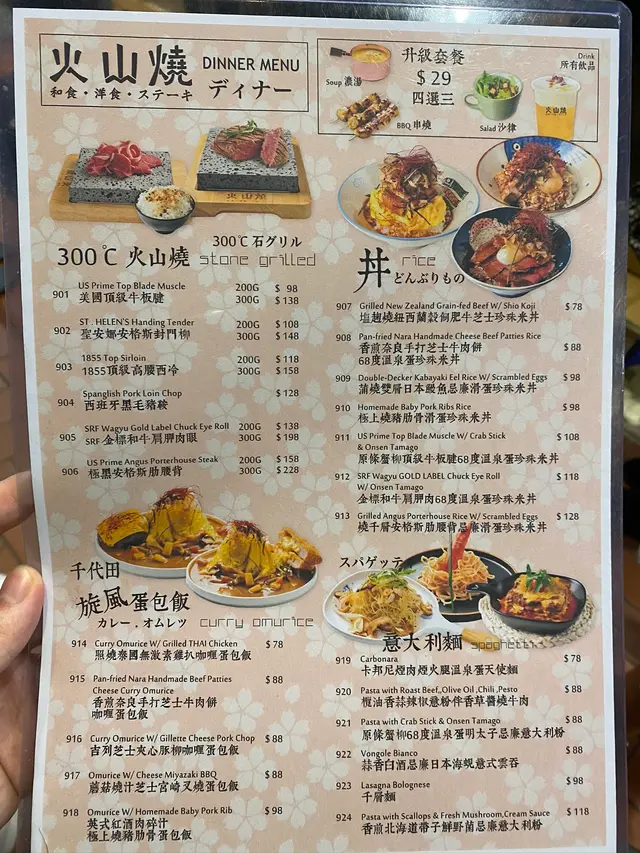 火山燒 DINNER MENU
和食・洋食・ステーキ ディナー
升級套餐
$29
四選三
Soup 濃湯
BBQ 串燒
Salad 沙律
Drink
所有飲品
火山燒
300℃ 火山燒
300℃ 石グリル
stone grilled
901 US Prime Top Blade Muscle 200G $ 98
美國頂級牛板腱 300G $ 138
902 ST. HELEN'S Handing Tender 200G $ 108
聖安娜安格斯封門柳 300G $ 148
903 1855 Top Sirloin 200G $ 118
1855頂級高腰西冷 300G $ 158
904 Spanglish Pork Loin Chop $ 128
西班牙黑毛豬鞍
905 SRF Wagyu Gold Label Chuck Eye Roll 200G $ 138
SRF 金標和牛肩胛肉眼 300G $ 198
906 US Prime Angus Porterhouse Steak 200G $ 158
極黑安格斯肋腰背 300G $ 228
丼 rice
どんぶりもの
907 Grilled New Zealand Grain-fed Beef W/ Shio Koji $ 78
塩麴燒紐西蘭穀飼肥牛芝士珍珠米丼
908 Pan-fried Nara Handmade Cheese Beef Patties Rice $ 88
香煎奈良手打芝士牛肉餅
68度溫泉蛋珍珠米丼
909 Double-Decker Kabayaki Eel Rice W/ Scrambled Eggs $ 98
蒲燒雙層日本鰻魚忌廉滑蛋珍珠米丼
910 Homemade Baby Pork Ribs Rice $ 98
極上燒豬肋骨滑蛋珍珠米丼
911 US Prime Top Blade Muscle W/ Crab Stick $ 108
& Onsen Tamago
原條蟹柳頂級牛板腱68度溫泉蛋珍珠米丼
912 SRF Wagyu GOLD LABEL Chuck Eye Roll $ 118
W/ Onsen Tamago
金標和牛肩胛肉68度溫泉蛋珍珠米丼
913 Grilled Angus Porterhouse Rice W/ Scrambled Eggs $ 128
燒千層安格斯肋腰背忌廉滑蛋珍珠米丼
千代田
旋風蛋包飯
カレー．オムレツ curry omurice
914 Curry Omurice W/ Grilled THAI Chicken $ 78
照燒泰國無激素雞扒咖喱蛋包飯
915 Pan-fried Nara Handmade Beef Patties $ 88
Cheese Curry Omurice
香煎奈良手打芝士牛肉餅
咖喱蛋包飯
916 Curry Omurice W/ Gillette Cheese Pork Chop $ 88
吉列芝士夾心豚柳咖喱蛋包飯
917 Omurice W/ Cheese Miyazaki BBQ $ 88
蘑菇燒汁芝士宮崎叉燒蛋包飯
918 Omurice W/ Homemade Baby Pork Rib $ 98
英式紅酒肉碎汁
極上燒豬肋骨蛋包飯
スパゲッテ
意大利麵 spaghetti
919 Carbonara $ 78
卡邦尼煙肉煙火腿溫泉蛋天使麵
920 Pasta with Roast Beef,,Olive Oil ,Chili ,Pesto $ 88
欖油香蒜辣椒意粉伴香草醬燒牛肉
921 Pasta with Crab Stick & Onsen Tamago $ 88
原條蟹柳68度溫泉蛋明太子忌廉意大利粉
922 Vongole Bianco $ 88
蒜香白酒忌廉日本海蜆意式雲吞
923 Lasagna Bolognese $ 98
千層麵
924 Pasta with Scallops & Fresh Mushroom,Cream Sauce $ 118
香煎北海道帶子鮮野菌忌廉意大利粉